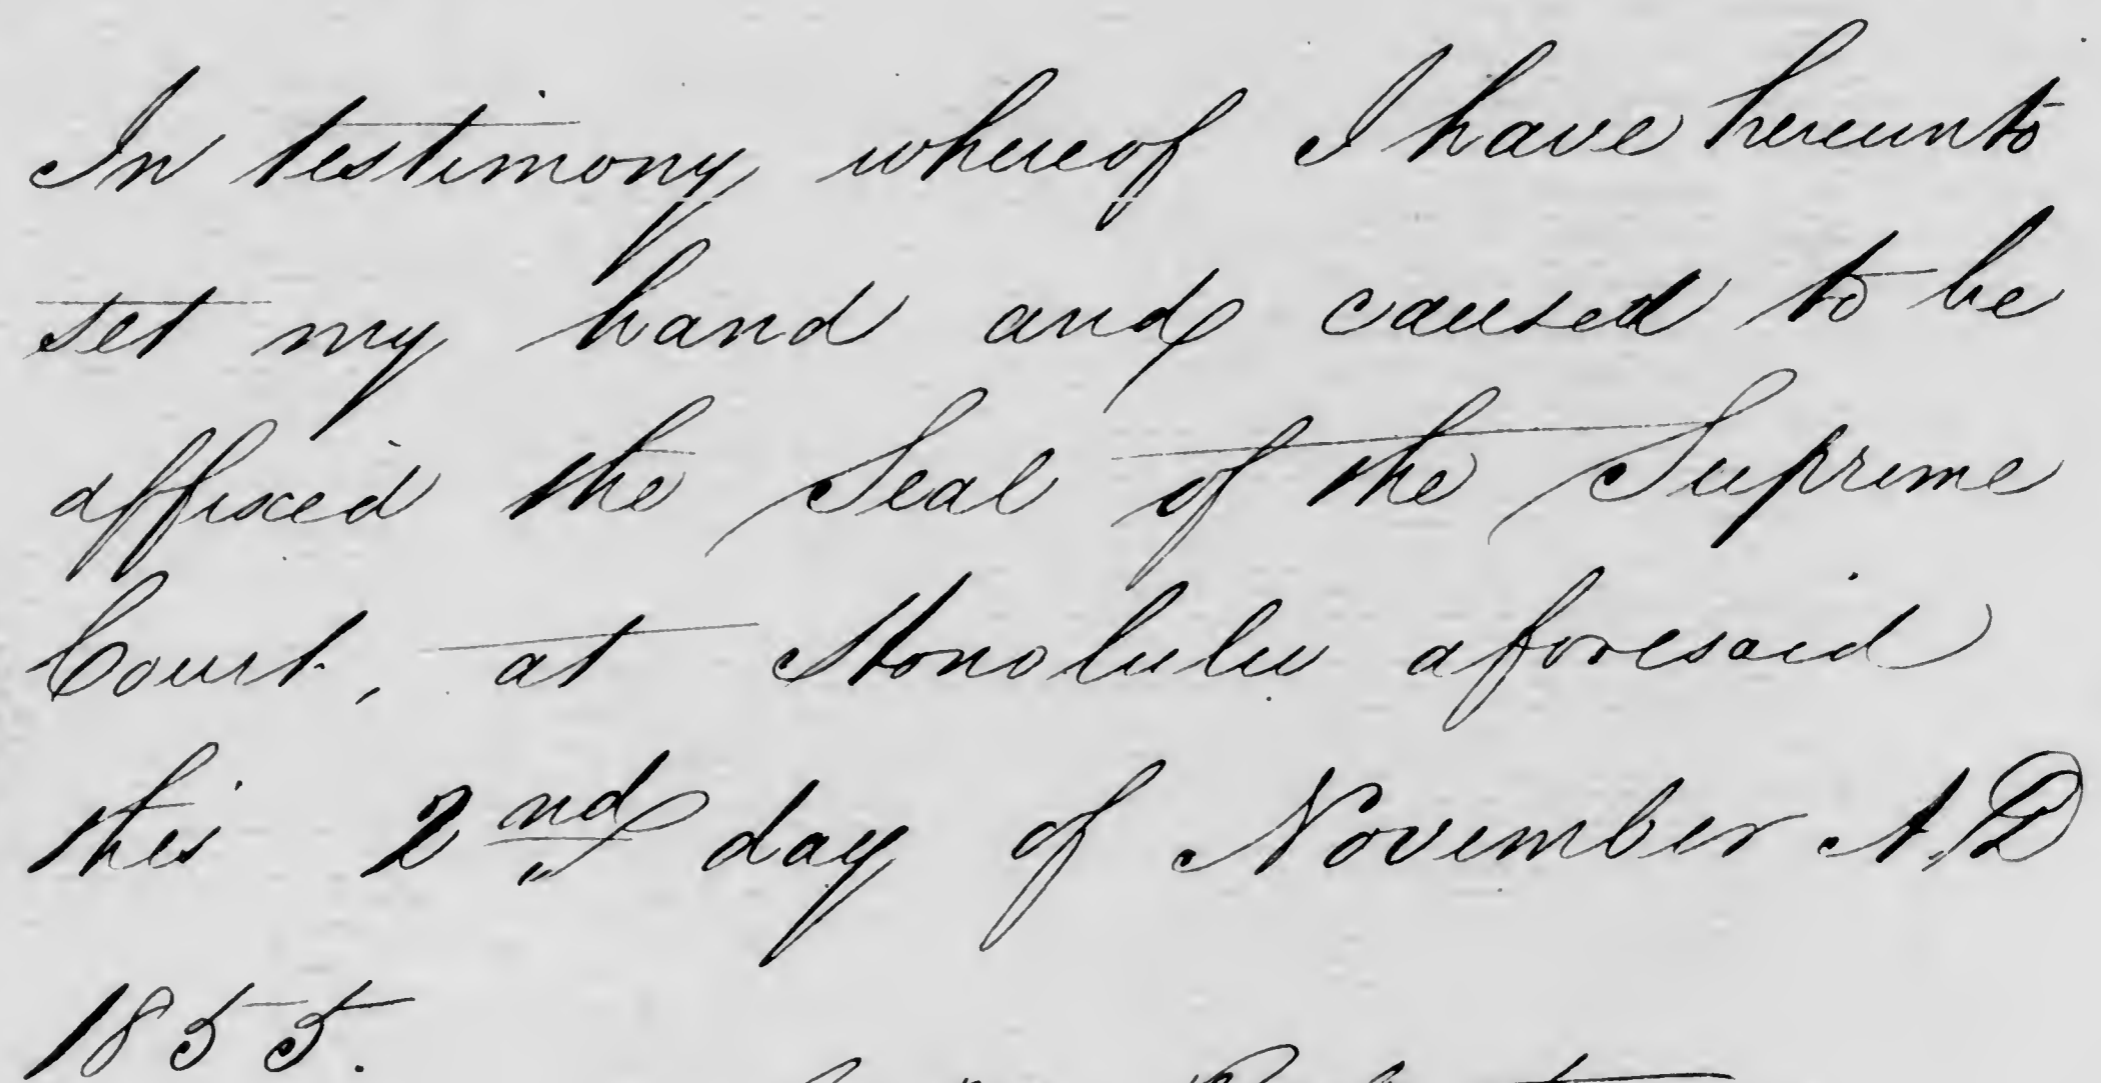 In testimony whereof I have hereunto
set my hand and caused to be
affixed the Seal of the Supreme
Court, at Honolulu aforesaid
this 2nd day of November A.D
1855.